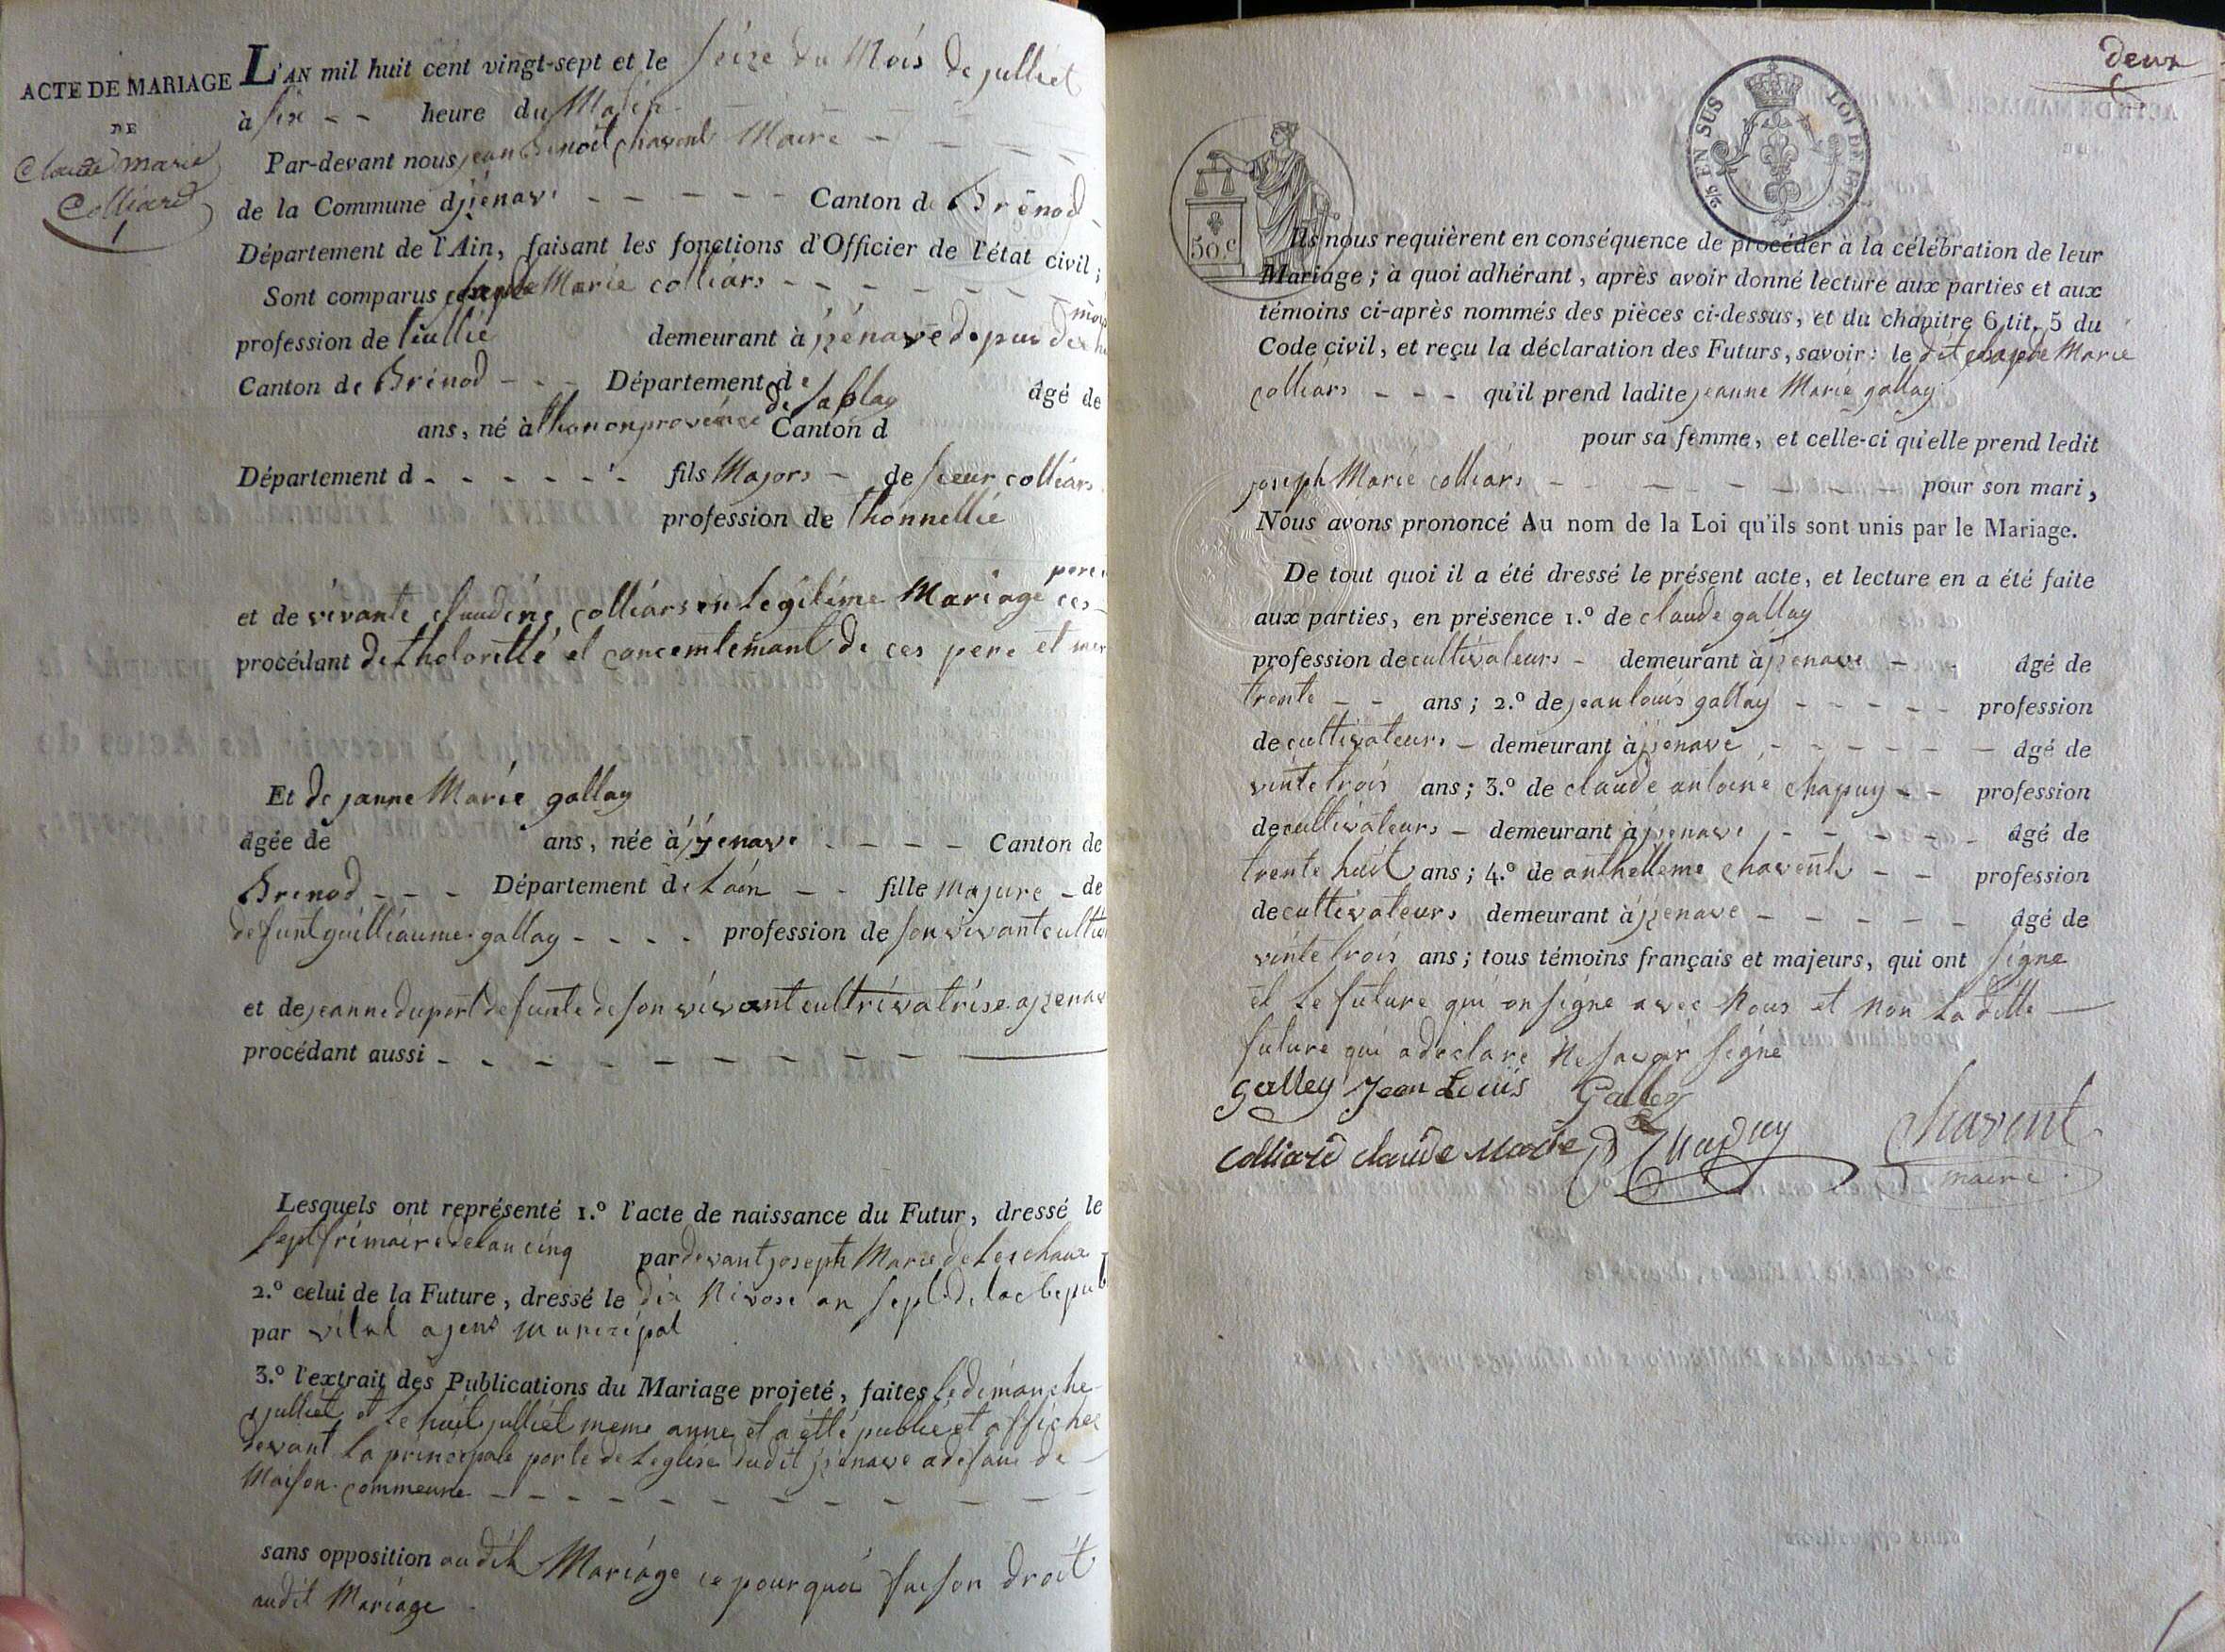 ACTE DE MARIAGE
DE
Claude marie
Colliard
L'AN mil huit cent vingt-sept et le seize du Mois de julliet
à six - - heure du Matin
Par-devant nous jean Benoit Chavent Maire
de la Commune d izenave - - - - - Canton de Brénod
Département de l'Ain, faisant les fonctions d'Officier de l'état civil;
Sont comparus Marie colliars - - - - - -
mois
profession de demeurant à izenave depuis dix
Canton de Brénod - - - Département de âgé de
ans, né à thonon province de sablay Canton d
Département d - - - - - - fils Majors - de sieur colliars
profession de thonnellié
pere
et de vivante claudine colliars en legitime Mariage ces
procédant de thotoritté et concentemant de ces pere et mer
Et de janne Marie gallay
âgée de ans, née à izenave - - - - Canton de
Brenod - - - Département de Lain - - fille majure - de
defunt guilliaume gallay - - - - profession de son vivant cultiv
et de jeanne duport defunte de son vivant cultrivatrise a izenav
procédant aussi - - - - - - - -
Lesquels ont représenté 1.º l'acte de naissance du Futur, dressé le
sept frimaire de lan cinq par devant joseph Marie de Leschaux
2.º celui de la Future, dressé le dix Nivose an sept de la Repub
par vital agens municipal
3.º l'extrait des Publications du Mariage projeté, faites le dimanche
julliet et le huit julliet meme anne et a étté publie et affiche
devant la principale porte de Leglise dudit izenave adefaue de
Maison commeune - - - - - - - - - -
sans opposition audit Mariage ce pourquoi faison droit
audit Mariage
deux
2/5 EN SUS
LOI DE 1816
50.c
Ils nous requièrent en conséquence de procéder à la célébration de leur
Mariage; à quoi adhérant, après avoir donné lecture aux parties et aux
témoins ci-après nommés des pièces ci-dessus, et du chapitre 6, tit. 5 du
Code civil, et reçu la déclaration des Futurs, savoir: le dit Marie
colliars - - - qu'il prend ladite jeanne Marie gallay
pour sa femme, et celle-ci qu'elle prend ledit
joseph Marie colliars - - - - - - - pour son mari,
Nous avons prononcé Au nom de la Loi qu'ils sont unis par le Mariage.
De tout quoi il a été dressé le présent acte, et lecture en a été faite
aux parties, en présence 1.º de claude gallay
profession de cultivateurs - demeurant à izenave - - âgé de
trente - - ans; 2.º de jean louis gallay - - - - - profession
de cultivateurs - demeurant à izenave - - - - - - âgé de
vinte trois ans; 3.º de claude antoine chapuy - - profession
de cultivateurs - demeurant à izenave - - - - - âgé de
trente huit ans; 4.º de anthelleme chavent - - profession
de cultivateurs demeurant à izenave - - - - - âgé de
vinte trois ans; tous témoins français et majeurs, qui ont signe
et Le future qui on signe avec Nous et Non la ditte
future qui a declare Ne savoir signe
galley Jean Louis Galley
Colliard claude Marie Chapuy Chavent
maire